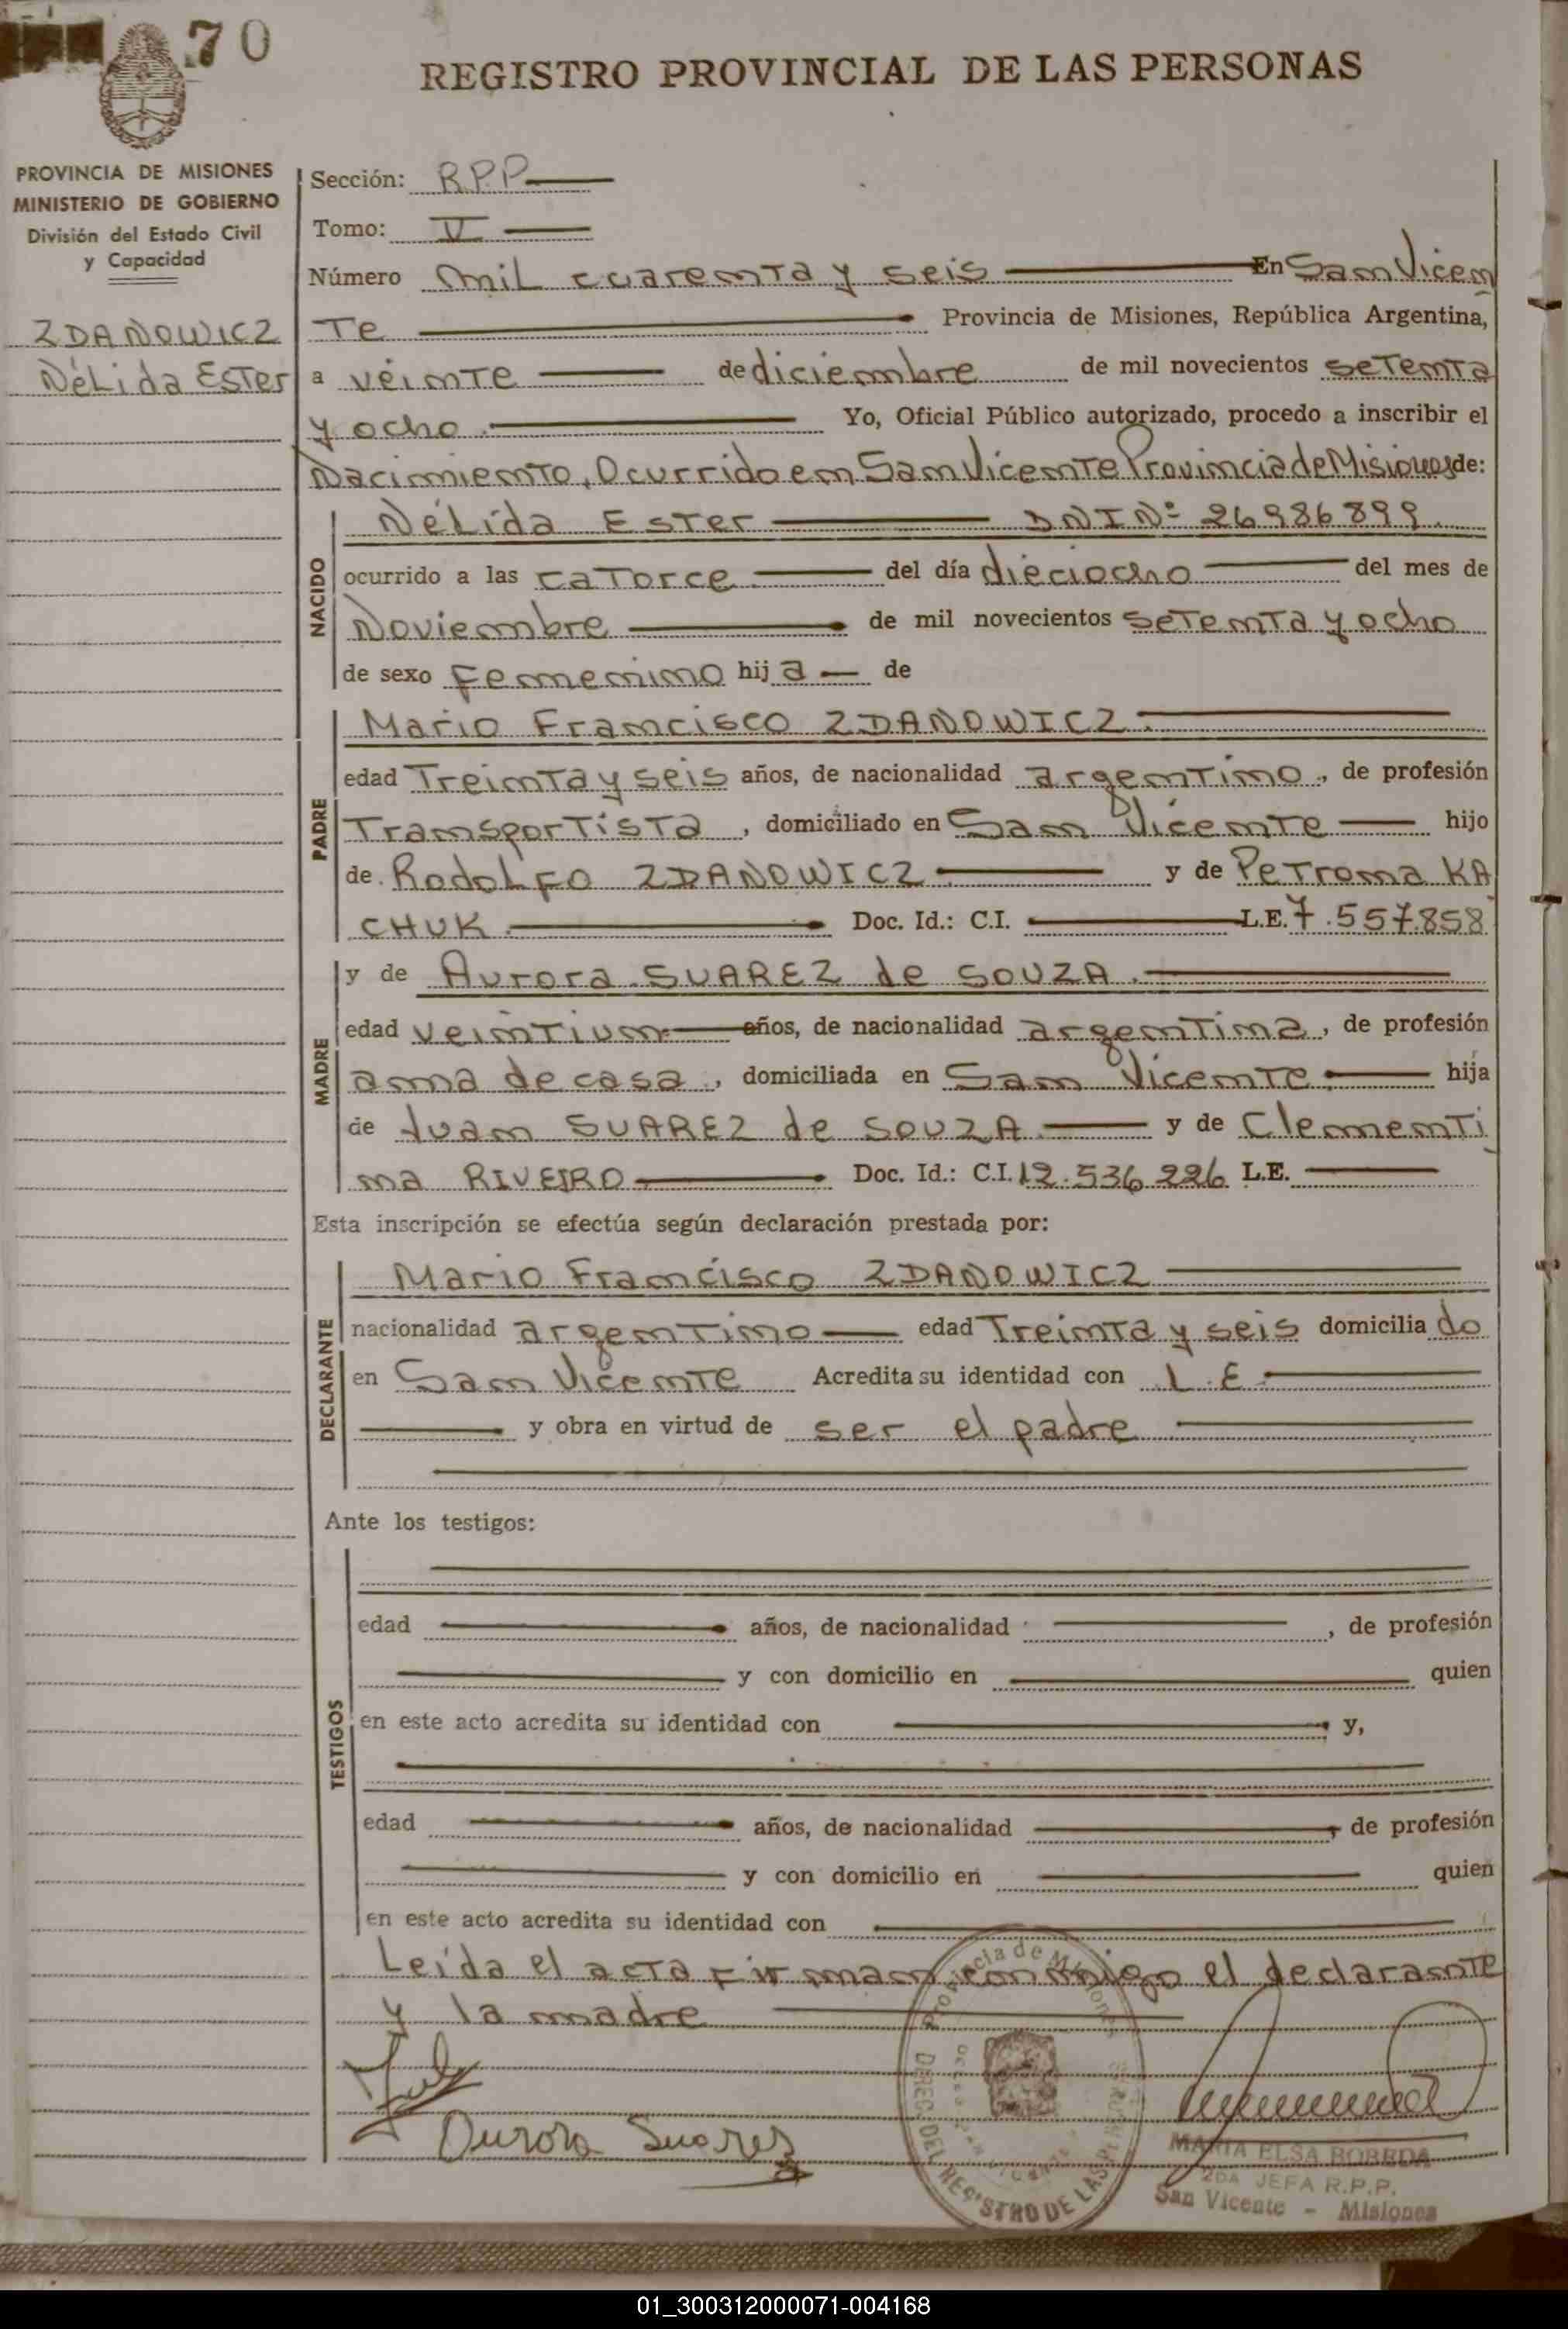 70
REGISTRO PROVINCIAL DE LAS PERSONAS
PROVINCIA DE MISIONES
MINISTERIO DE GOBIERNO
División del Estado Civil
y Capacidad
ZDANOWICZ
Nélida Ester
Sección: R.P.P.
Tomo: V
Número mil cuarenta y seis En San Vicen
te Provincia de Misiones, República Argentina,
a veinte de diciembre de mil novecientos setenta
y ocho. Yo, Oficial Público autorizado, procedo a inscribir el
Nacimiento, Ocurrido en San Vicente Provincia de Misiones de:
NACIDO
Nélida Ester DNI Nº 26986899.
ocurrido a las catorce. del día dieciocho del mes de
Noviembre de mil novecientos setenta y ocho
de sexo Femenino hija de
PADRE
Mario Francisco ZDANOWICZ.
edad Treinta y seis años, de nacionalidad argentino, de profesión
Transportista, domiciliado en San Vicente hijo
de Rodolfo ZDANOWICZ y de Petrona KA
CHUK. Doc. Id.: C.I. L.E. 7.557.858
MADRE
y de Aurora SUAREZ de SOUZA.
edad veintiun años, de nacionalidad argentina, de profesión
ama de casa, domiciliada en San Vicente. hija
de Juan SUAREZ de SOUZA y de Clementi
na RIVEIRO Doc. Id.: C.I. 12.536.226 L.E.
Esta inscripción se efectúa según declaración prestada por:
DECLARANTE
Mario Francisco ZDANOWICZ
nacionalidad argentino edad Treinta y seis domiciliado
en San Vicente Acredita su identidad con L.E.
y obra en virtud de ser el padre
Ante los testigos:
TESTIGOS
edad años, de nacionalidad , de profesión
y con domicilio en quien
en este acto acredita su identidad con y,
edad años, de nacionalidad , de profesión
y con domicilio en quien
en este acto acredita su identidad con
Leída el acta firman conmigo el declarante
y la madre
Aurora Suarez
Provincia de Misiones
DIREC. DEL REGISTRO DE LAS PERSONAS
MARIA ELSA BOBEDA
2DA JEFA R.P.P.
San Vicente - Misiones
01_300312000071-004168